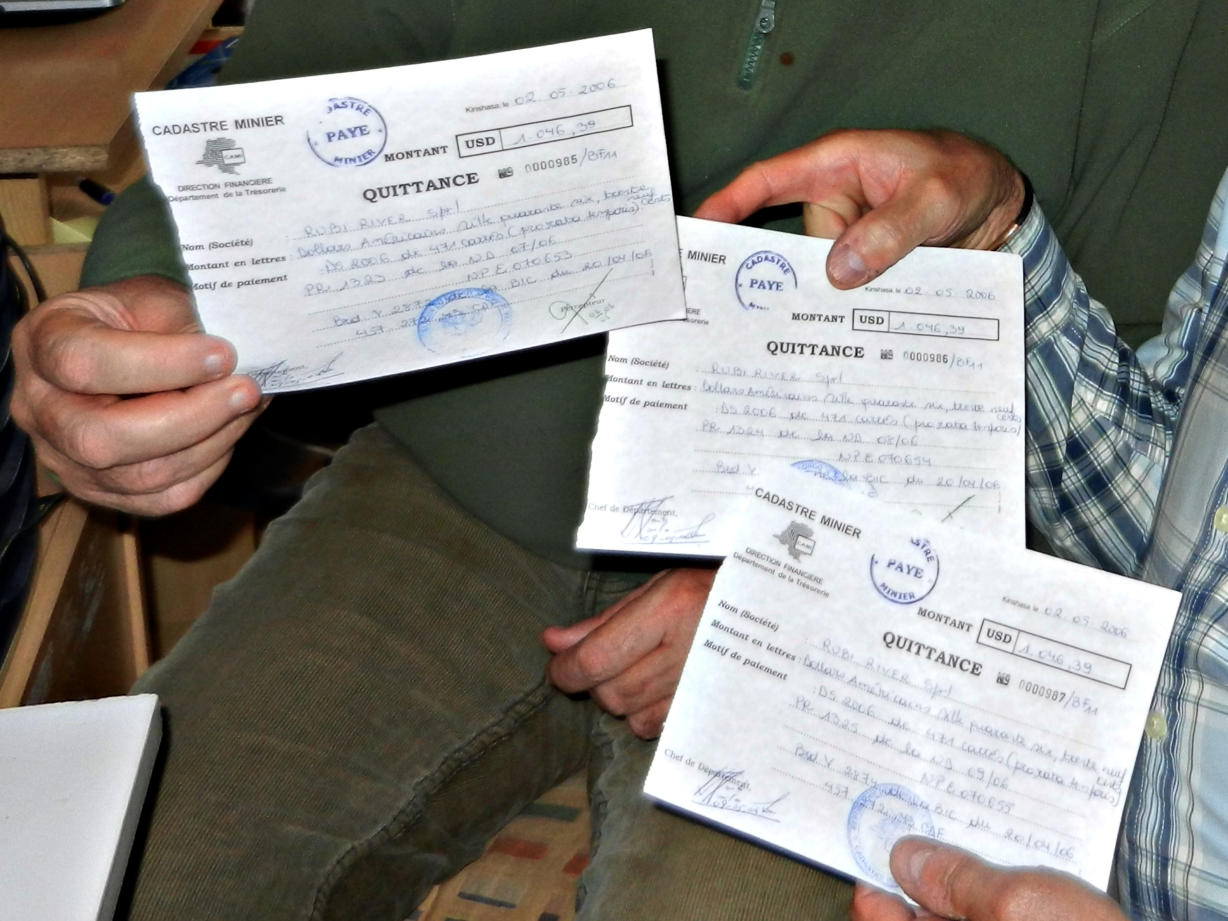 CADASTRE MINIER
CAMI
DIRECTION FINANCIERE
Département de la Trésorerie
CADASTRE
PAYE
MINIER
Kinshasa le 02 05 2006
MONTANT USD 1.046,39
QUITTANCE Nº 0000985/BF11
Nom (Société) : RUBI RIVER Sprl
Montant en lettres : Dollars Américains Mille quarante six, trente neuf cents
Motif de paiement : DS 2006 de 471 carrés (prorata temporis)
PR 1323 de la ND 07/06
NPE 070653
Bord. V 287 BIC du 20/04/06
457 272
Percepteur
MINIER
CADASTRE
PAYE
Kinshasa le 02 05 2006
MONTANT USD 1.046,39
QUITTANCE Nº 0000986/BF11
Nom (Société) : RUBI RIVER Sprl
Montant en lettres : Dollars Américains Mille quarante six, trente neuf cents
Motif de paiement : DS 2006 de 471 carrés (prorata temporis)
PR 1324 de la ND 08/06
NPE 070654
Bord. V BIC du 20/04/06
Chef de Département,
CADASTRE MINIER
CAMI
DIRECTION FINANCIERE
Département de la Trésorerie
PAYE
MINIER
Kinshasa le 02 05 2006
MONTANT USD 1.046,39
QUITTANCE Nº 0000987/BF11
Nom (Société) : RUBI RIVER Sprl
Montant en lettres : Dollars Américains Mille quarante six, trente neuf cents
Motif de paiement : DS 2006 de 471 carrés (prorata temporis)
PR 1325 de la ND 09/06
NPE 070655
Bord. V 2874 BIC du 20/04/06
457 272
Chef de Département,